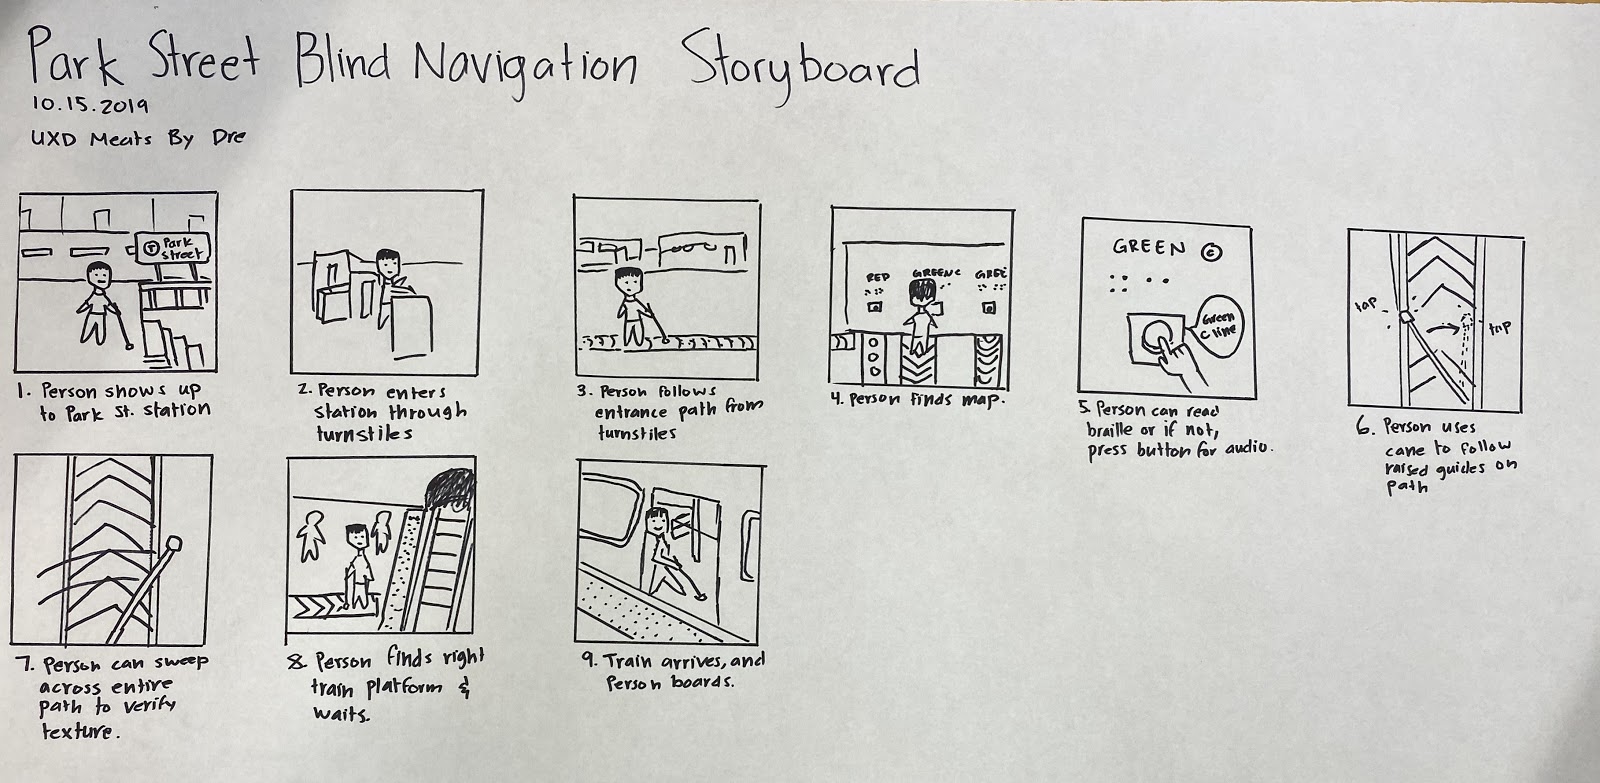 Park Street Blind Navigation Storyboard
10.15.2019
UXD Meats By Dre
T Park
Street
1. Person shows up
to Park St. station
2. Person enters
station through
turnstiles
3. Person follows
entrance path from
turnstiles
RED GREEN C GREE
4. Person finds map.
GREEN C
Green
C line
5. Person can read
braille or if not,
press button for audio.
tap
tap
6. Person uses
cane to follow
raised guides on
path
7. Person can sweep
across entire
path to verify
texture.
8. Person finds right
train platform &
waits.
9. Train arrives, and
Person boards.